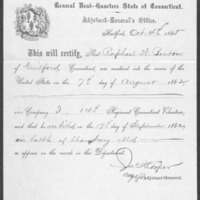 General Head-Quarters State of Connecticut.
Adjutant-General's Office.
Hartford, Oct. 4th 1865
This will certify, That Raphael W. Benton
of Guilford Connecticut, was mustered into the service of the
United States on the 7th day of August 1862
in Company I 14th Regiment Connecticut Volunteers,
and that he was killed on the 17th day of September 1862
in battle of Sharpsburg Md.
as appears on the records in this Department.